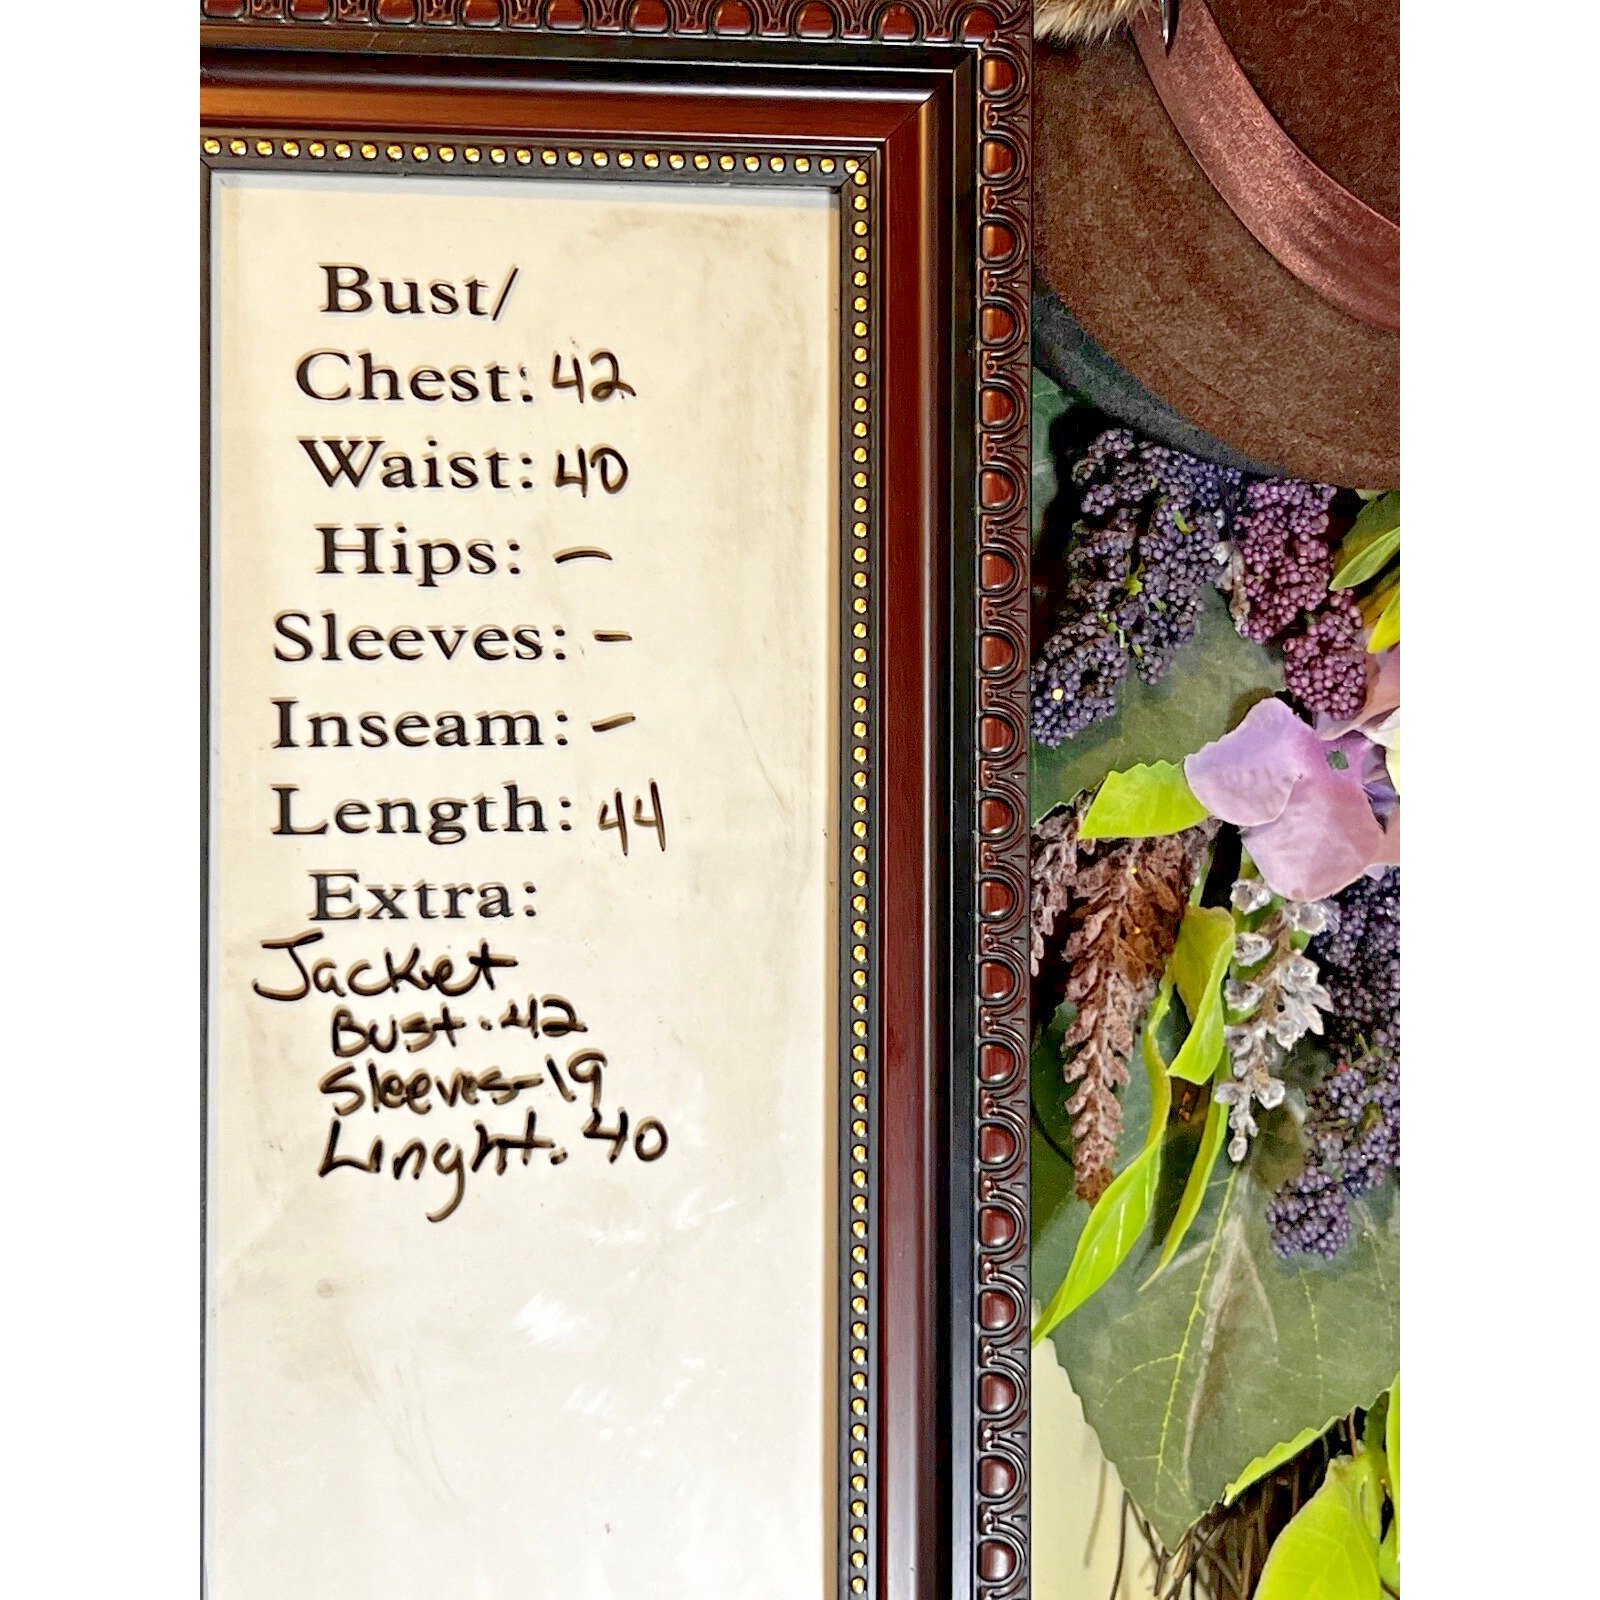 Bust/
Chest: 42
Waist: 40
Hips: -
Sleeves: -
Inseam: -
Length: 44
Extra:
Jacket
Bust: 42
Sleeves-19
Linght: 40